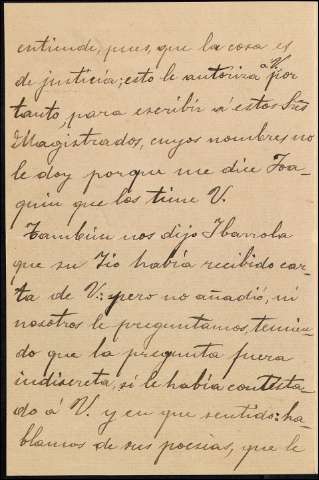 entiende, pues, que la cosa es
de justicia; esto le autoriza á V. por
tanto para escribir á estos Sres
Magistrados, cuyos nombres no
le doy porque me dice Joa-
quin que los tiene V.
Tambien nos dijo Ibarrola
que su Tio había recibido car-
ta de V.; pero no añadió, ni
nosotros le preguntamos, temien-
do que la pregunta fuera
indiscreta, si le había contesta-
do á V. y en que sentido: ha-
blamos de sus poesias, que le